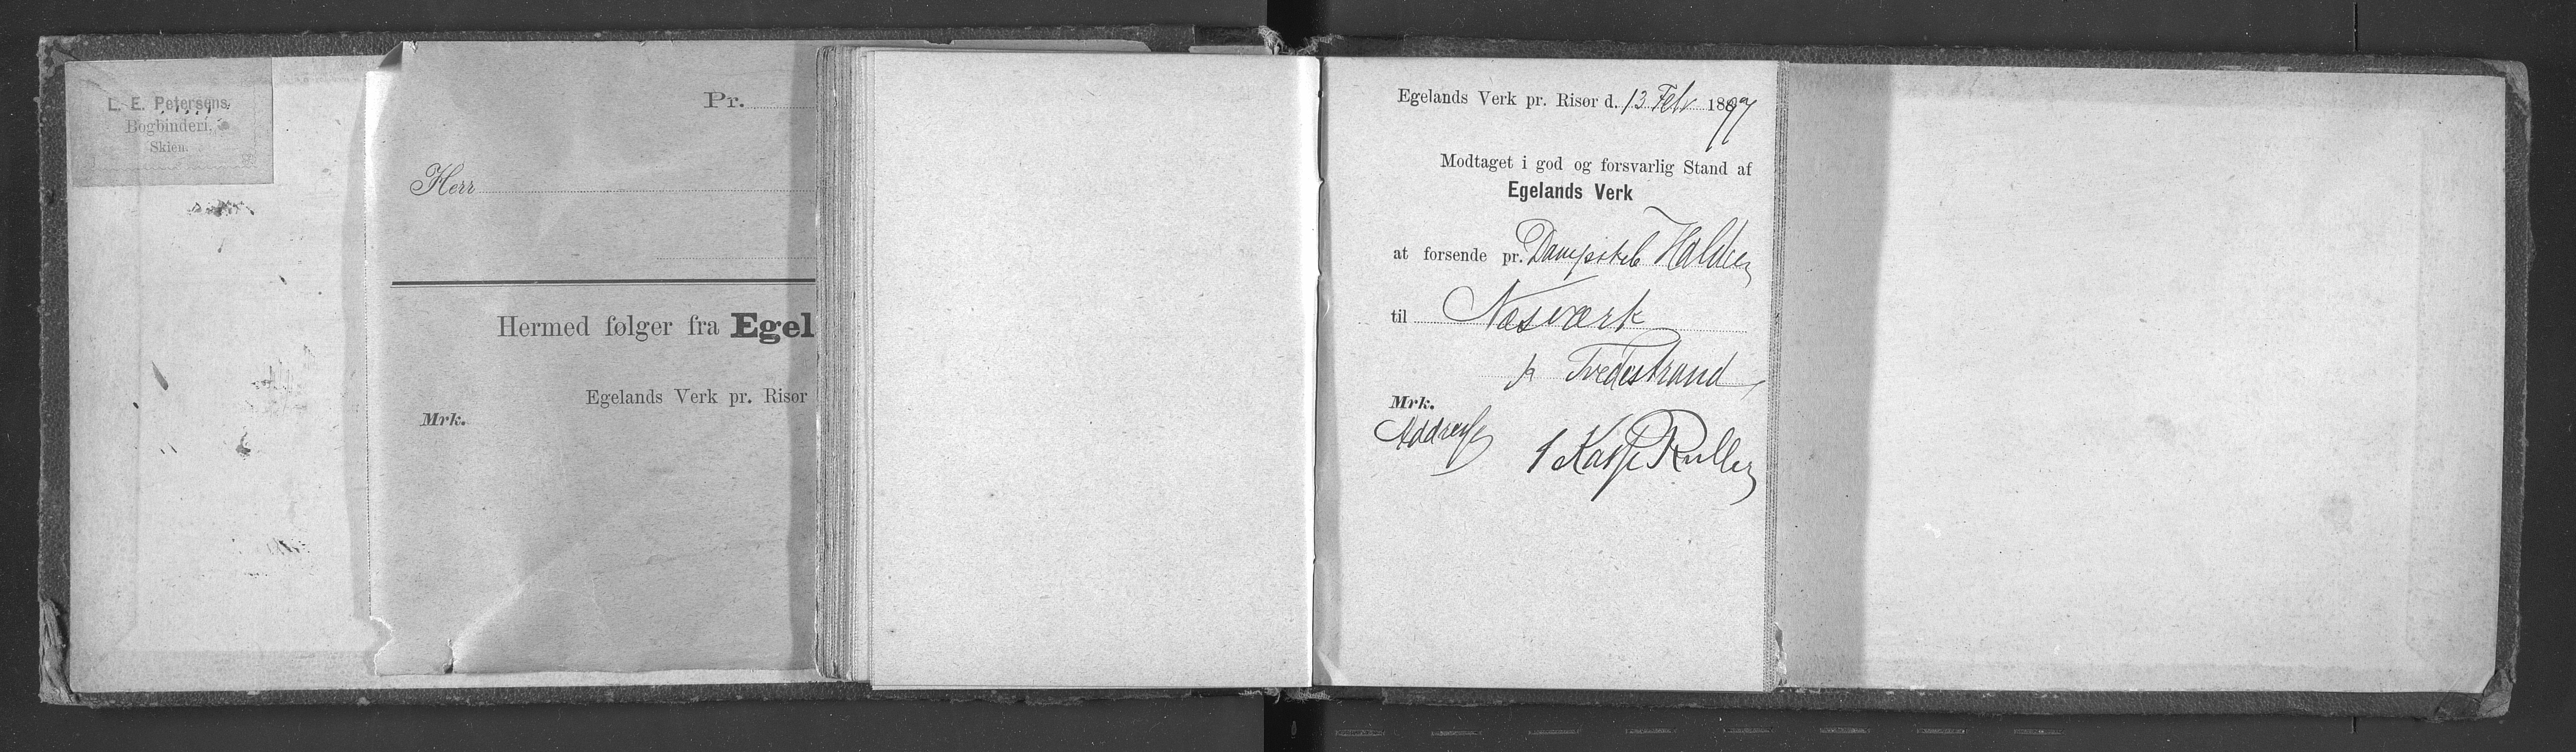 L. E. Petersens
Bogbinderi.
Skien.
Pr.
Herr
Hermed følger fra Egel
Egelands Verk pr. Risør
Mrk.
Egelands Verk pr. Risør d. 13 Feb 1897
Modtaget i god og forsvarlig Stand af
Egelands Verk
at forsende pr. Dampskib Halden
til Næsværk
pr Tvedestrand
Mrk.
Addresse
1 Kasse Ruller